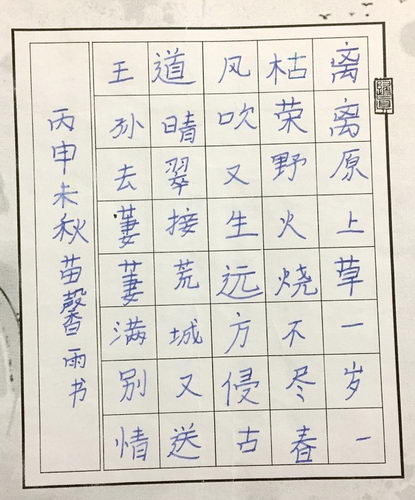 离离原上草一岁一
枯荣野火烧不尽春
风吹又生远方侵古
道晴翠接荒城又送
王孙去萋萋满别情
丙申未秋苗馨雨书